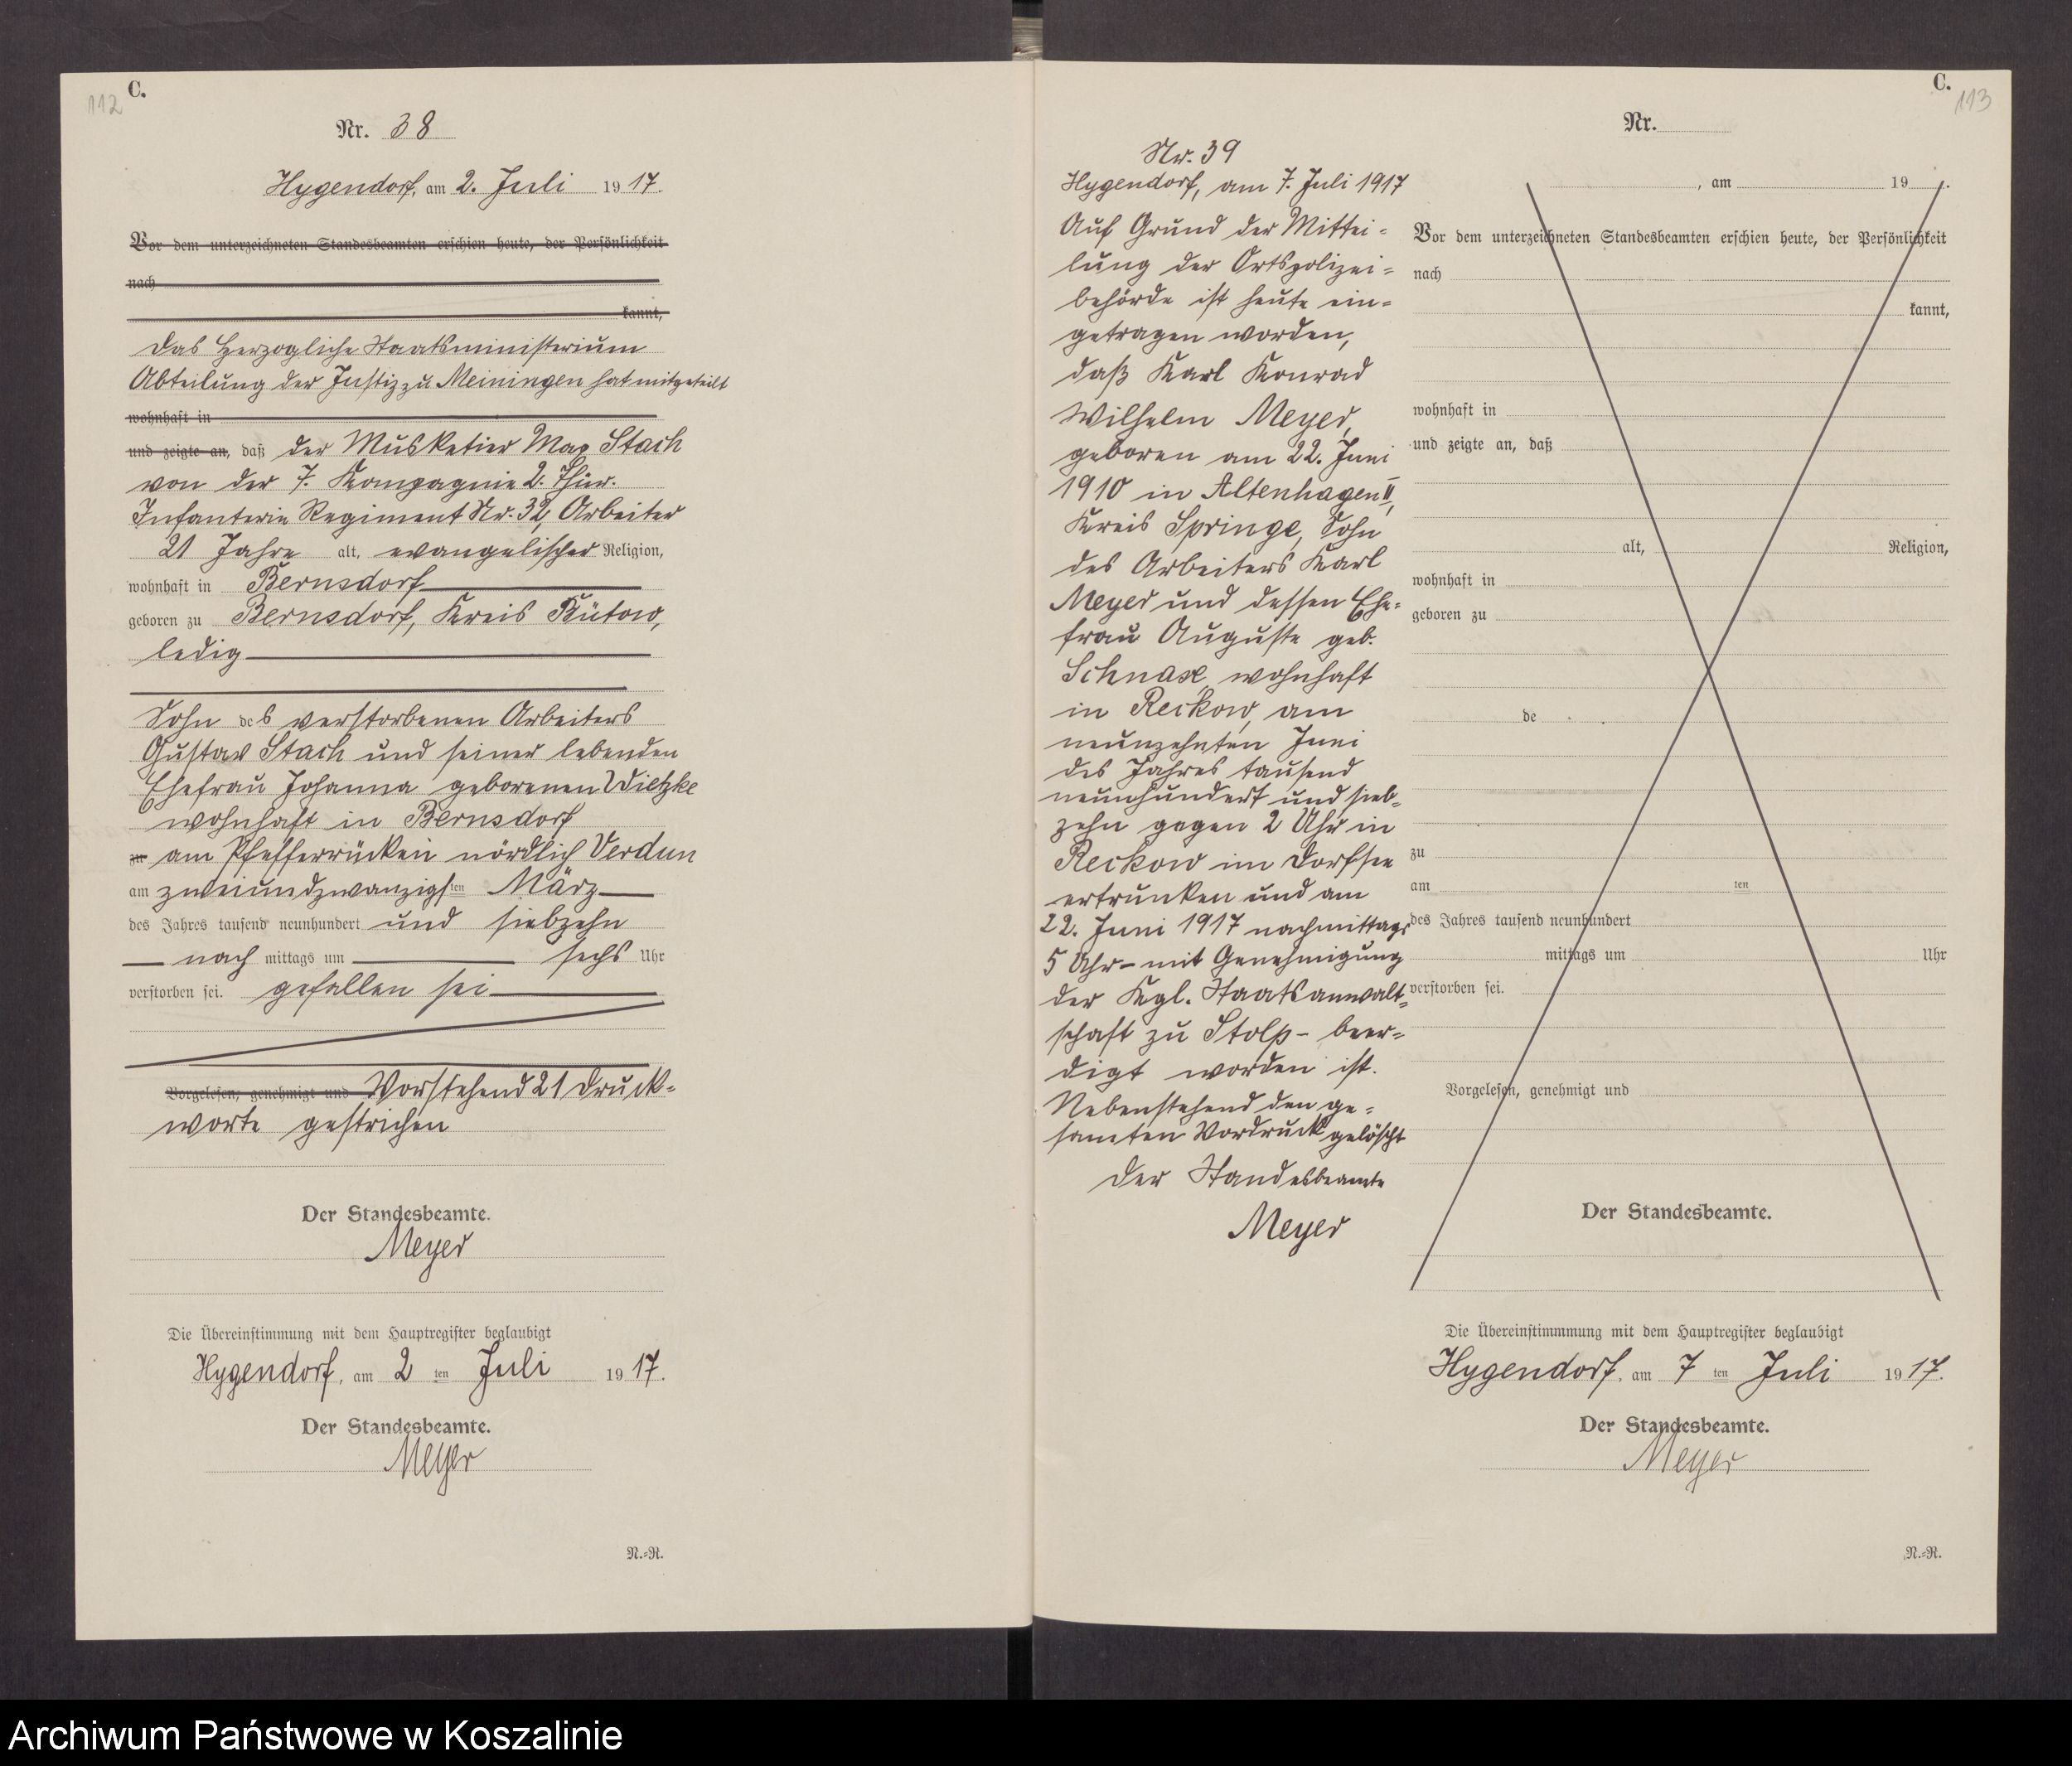 112
C.
Nr. 38
Hygendorf, am 2. Juli 1917.
Vor dem unterzeichneten Standesbeamten erschien heute, der Persönlichkeit
nach
kannt,
Das Herzogliche Staatsministerium
Abteilung der Justiz zu Meiningen hat mitgeteilt
wohnhaft in
und zeigte an, daß der Musketier Max Stach
von der 7. Kompagnie 2. Thür.
Infanterie Regiment Nr. 32, Arbeiter
21 Jahre alt, evangelischer Religion,
wohnhaft in Bernsdorf
geboren zu Bernsdorf, Kreis Bütow,
ledig
Sohn des verstorbenen Arbeiters
Gustav Stach und seiner lebenden
Ehefrau Johanna geborenen Wietzke
wohnhaft in Bernsdorf
zu am Pfefferrücken nördlich Verdun
am zweiundzwanzigsten März
des Jahres tausend neunhundert und siebzehn
nach mittags um sechs Uhr
verstorben sei. gefallen sei
Vorgelesen, genehmigt und Vorstehend 21 Druck-
worte gestrichen
Der Standesbeamte.
Meyer
Die Übereinstimmung mit dem Hauptregister beglaubigt
Hygendorf, am 2 ten Juli 1917.
Der Standesbeamte.
Meyer
N.=R.
C.
113
Nr. 39
Hygendorf, am 7. Juli 1917
Auf Grund der Mittei-
lung der Ortspolizei-
behörde ist heute ein-
getragen worden,
daß Karl Konrad
Wilhelm Meyer,
geboren am 22. Juni
1910 in Altenhagen II,
Kreis Springe, Sohn
des Arbeiters Karl
Meyer und dessen Ehe-
frau Auguste geb.
Schnase, wohnhaft
in Reckow, am
neunzehnten Juni
des Jahres tausend
neunhundert und sieb-
zehn gegen 2 Uhr in
Reckow im Dorfsee
ertrunken und am
22. Juni 1917 nachmittags
5 Uhr - mit Genehmigung
der Kgl. Staatsanwalt-
schaft zu Stolp - beer-
digt worden ist.
Nebenstehend den ge-
samten Vordruck gelöscht
Der Standesbeamte
Meyer
Nr.
, am 19 .
Vor dem unterzeichneten Standesbeamten erschien heute, der Persönlichkeit
nach
kannt,
wohnhaft in
und zeigte an, daß
alt, Religion,
wohnhaft in
geboren zu
de
zu
am ten
des Jahres tausend neunhundert
mittags um Uhr
verstorben sei.
Vorgelesen, genehmigt und
Der Standesbeamte.
Die Übereinstimmmung mit dem Hauptregister beglaubigt
Hygendorf, am 7 ten Juli 1917.
Der Standesbeamte.
Meyer
N.=R.
Archiwum Państwowe w Koszalinie